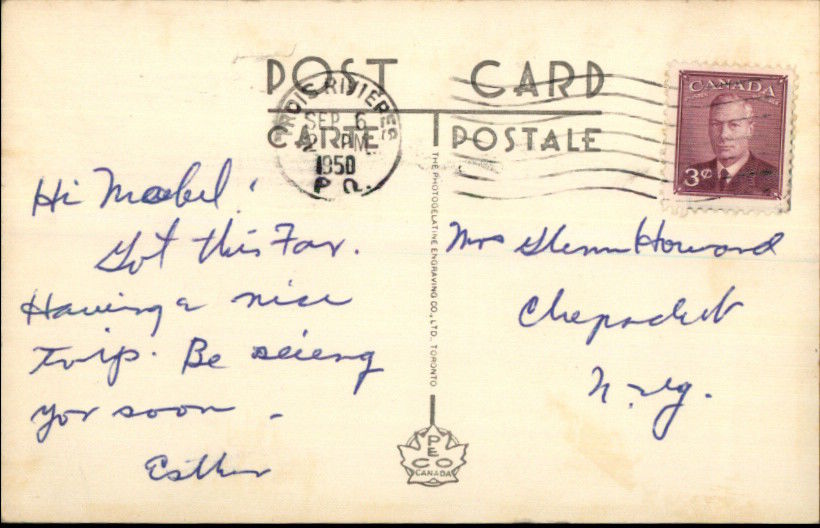 POST CARD
CARTE POSTALE
TROIS RIVIERES
SEP 6
PM
1950
P. Q.
CANADA
3¢
Hi Maebel!
Got this Far.
Having a nice
trip. Be seieng
yor soon -
Esther
Mrs Glenn Howard
Chepachet
THE PHOTOGELATINE ENGRAVING CO., LTD., TORONTO
PECO
CANADA